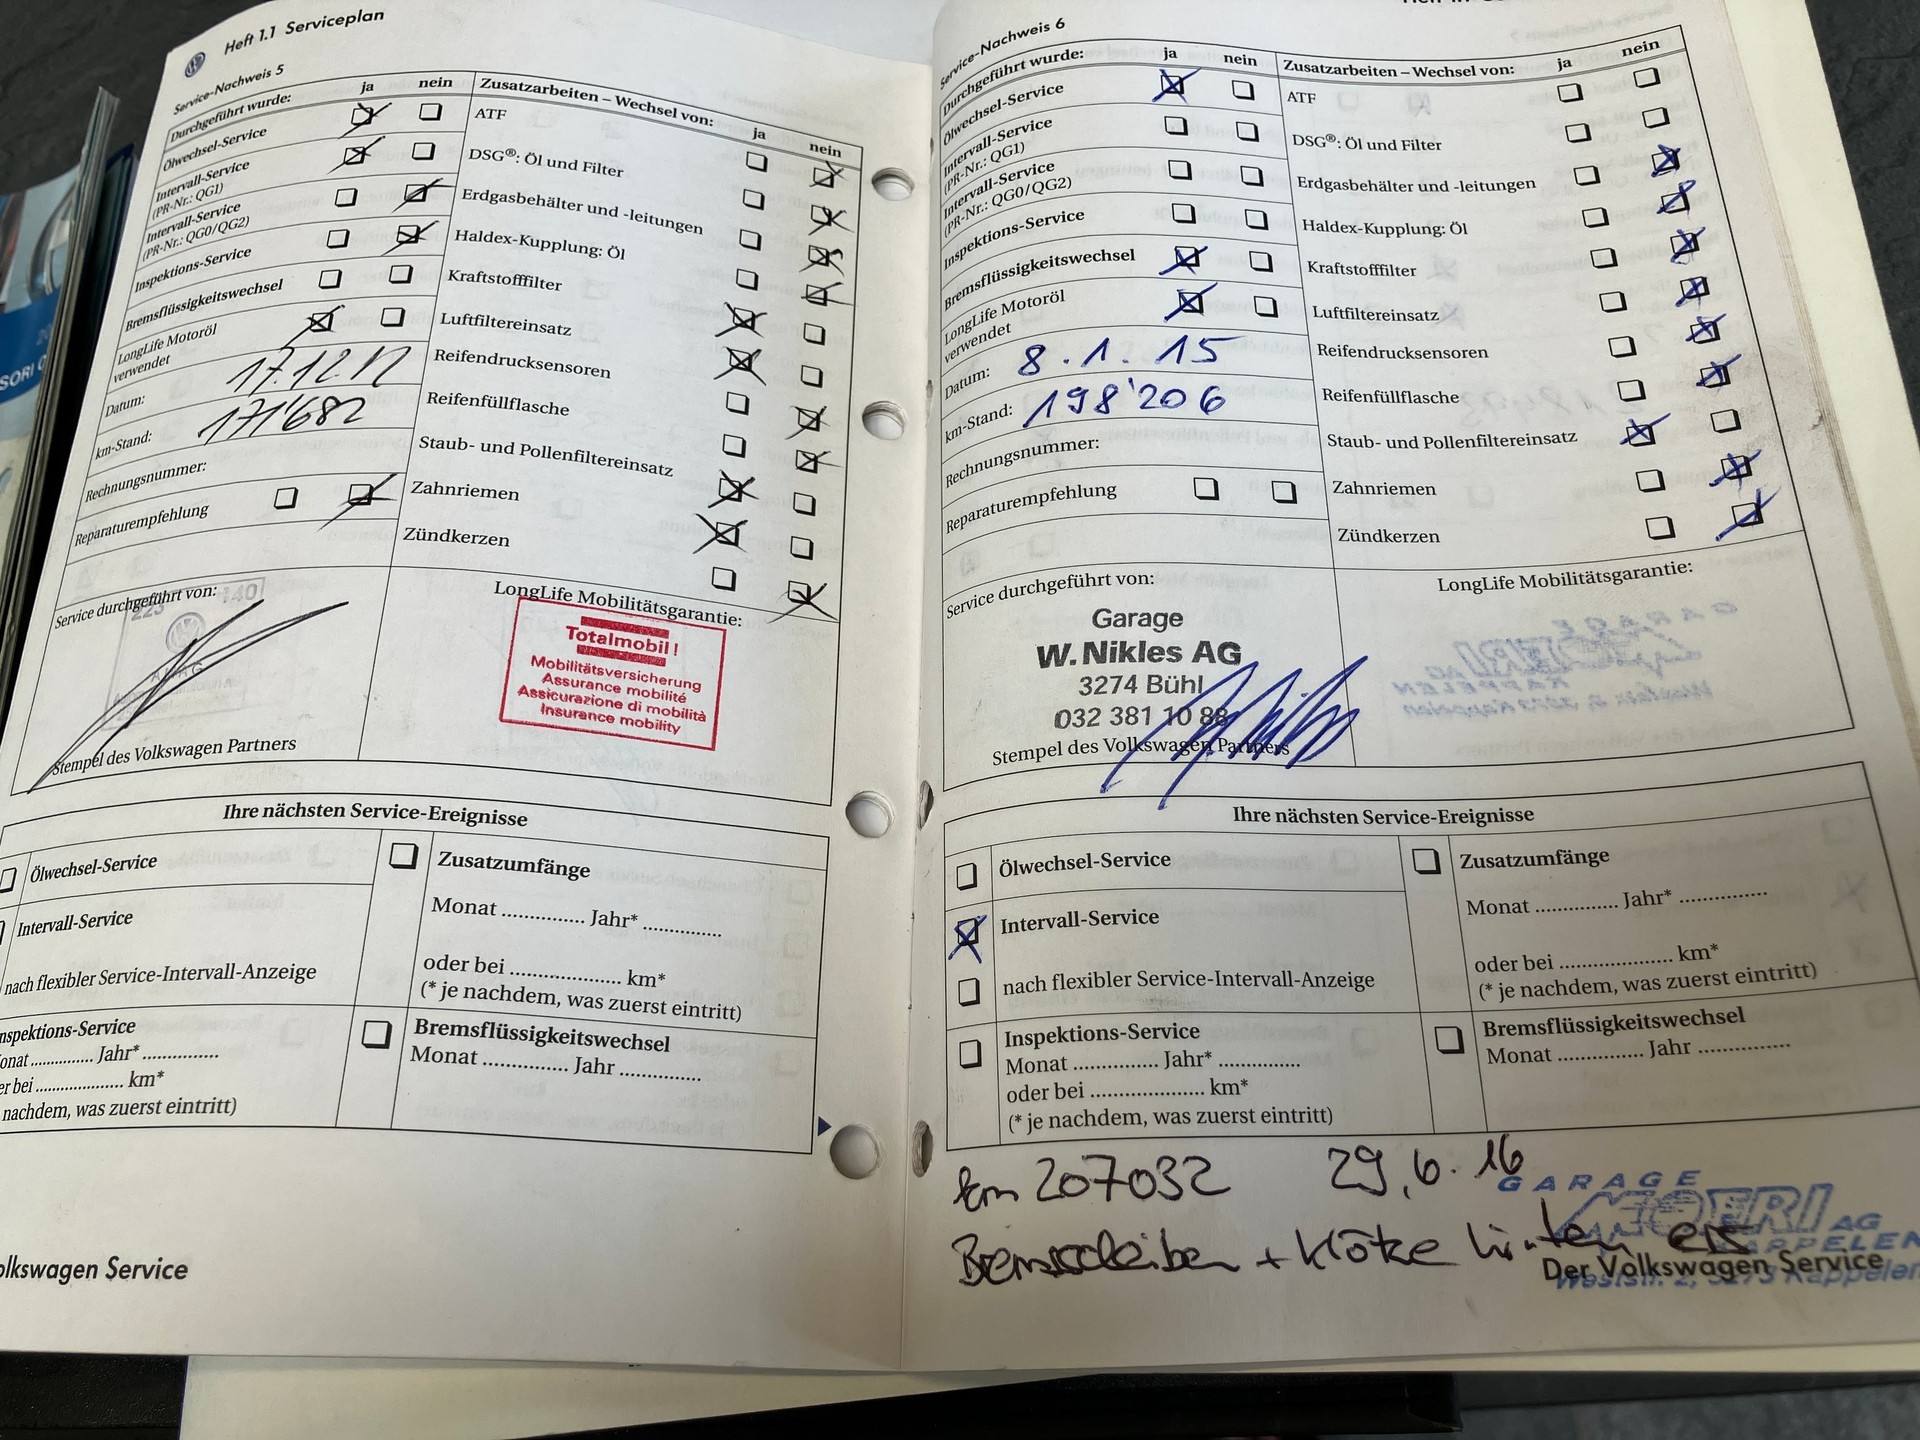 Heft 1.1 Serviceplan
Service-Nachweis 5
Durchgeführt wurde: ja nein
Ölwechsel-Service
Intervall-Service
(PR-Nr.: QG1)
Intervall-Service
(PR-Nr.: QG0/QG2)
Inspektions-Service
Bremsflüssigkeitswechsel
LongLife Motoröl
verwendet
Datum: 17.12.12
km-Stand: 171'682
Rechnungsnummer:
Reparaturempfehlung
Zusatzarbeiten – Wechsel von: ja nein
ATF
DSG®: Öl und Filter
Erdgasbehälter und -leitungen
Haldex-Kupplung: Öl
Kraftstofffilter
Luftfiltereinsatz
Reifendrucksensoren
Reifenfüllflasche
Staub- und Pollenfiltereinsatz
Zahnriemen
Zündkerzen
Service durchgeführt von:
223 140
Stempel des Volkswagen Partners
LongLife Mobilitätsgarantie:
Totalmobil!
Mobilitätsversicherung
Assurance mobilité
Assicurazione di mobilità
Insurance mobility
Ihre nächsten Service-Ereignisse
Ölwechsel-Service
Intervall-Service
nach flexibler Service-Intervall-Anzeige
nspektions-Service
onat .............. Jahr* .................
er bei .................... km*
nachdem, was zuerst eintritt)
Zusatzumfänge
Monat .............. Jahr* ..............
oder bei .................... km*
(* je nachdem, was zuerst eintritt)
Bremsflüssigkeitswechsel
Monat .............. Jahr ..............
olkswagen Service
Service-Nachweis 6
Durchgeführt wurde: ja nein
Ölwechsel-Service
Intervall-Service
(PR-Nr.: QG1)
Intervall-Service
(PR-Nr.: QG0/QG2)
Inspektions-Service
Bremsflüssigkeitswechsel
LongLife Motoröl
verwendet
Datum: 8.1.15
km-Stand: 198'206
Rechnungsnummer:
Reparaturempfehlung
Zusatzarbeiten – Wechsel von: ja nein
ATF
DSG®: Öl und Filter
Erdgasbehälter und -leitungen
Haldex-Kupplung: Öl
Kraftstofffilter
Luftfiltereinsatz
Reifendrucksensoren
Reifenfüllflasche
Staub- und Pollenfiltereinsatz
Zahnriemen
Zündkerzen
Service durchgeführt von:
Garage
W. Nikles AG
3274 Bühl
032 381 10 88
Stempel des Volkswagen Partners
LongLife Mobilitätsgarantie:
Ihre nächsten Service-Ereignisse
Ölwechsel-Service
Intervall-Service
nach flexibler Service-Intervall-Anzeige
Inspektions-Service
Monat .............. Jahr* ..............
oder bei .................... km*
(* je nachdem, was zuerst eintritt)
Zusatzumfänge
Monat .............. Jahr* ..............
oder bei .................... km*
(* je nachdem, was zuerst eintritt)
Bremsflüssigkeitswechsel
Monat .............. Jahr ..............
km 207032 29.6.16
Bremsscheiben + Klötze hinten ers
GARAGE
MOERI AG
KAPPELEN
Weststr. 2, 3273 Kappelen
Der Volkswagen Service